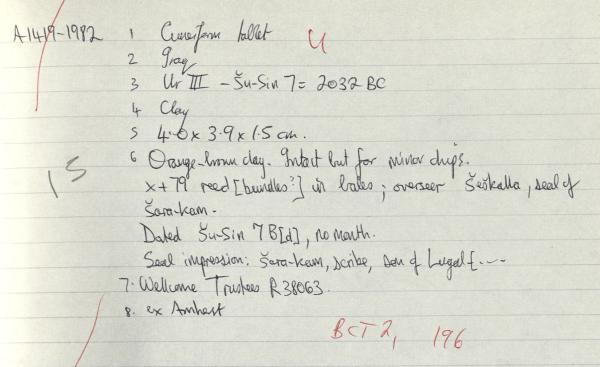 A1419-1982 1 Cuneiform tablet U
2 Iraq
3 Ur III - Šu-Sin 7 = 2032 BC
4 Clay
5 4.0 x 3.9 x 1.5 cm.
15
6 Orange-brown clay. Intact but for minor chips.
x+79 reed [bundles?] in bales; overseer Šeškalla, seal of
Šara-kam.
Dated Šu-Sin 7 B[d], no month.
Seal impression: Šara-kam, scribe, son of Lugal-[...
7. Wellcome Trustees R38063.
8. ex Amherst
BCT 2, 196